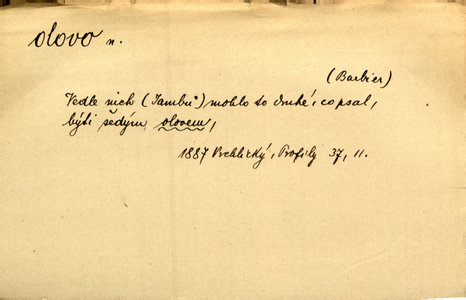 olovo n.
(Barbier)
Vedle nich (Jambů) mohlo to druhé, co psal,
býti šedým olovem,
1887 Vrchlický, Profily 37, 11.